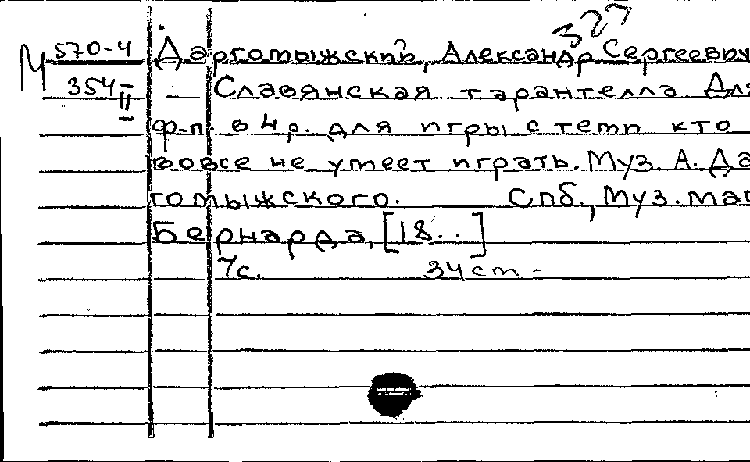 327
М 570-4 Даргомыжский, Александр Сергеевич
354 II – Славянская тарантелла Для
ф-п. в 4 р. для игры с теми кто
вовсе не умеет играть. Муз. А. Да
гомыжского. Спб., Муз. маг
Бернарда, [18..]
7с. 34 cm -